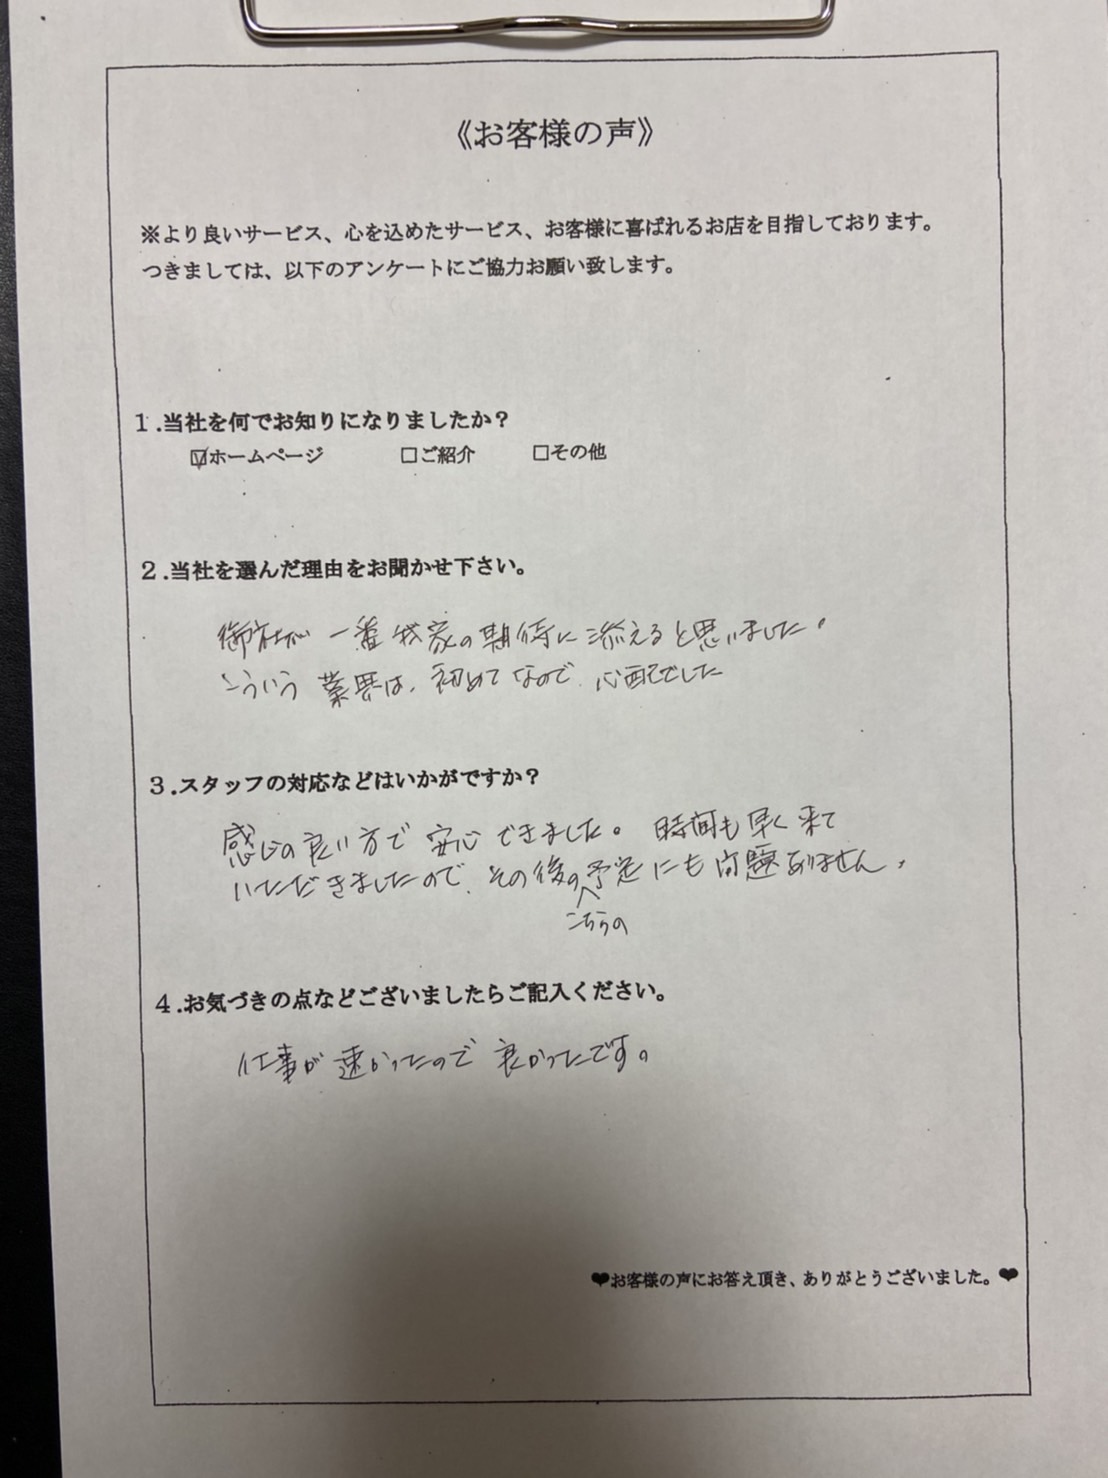 《お客様の声》
※より良いサービス、心を込めたサービス、お客様に喜ばれるお店を目指しております。
つきましては、以下のアンケートにご協力お願い致します。
１.当社を何でお知りになりましたか？
☑ホームページ　□ご紹介　□その他
２.当社を選んだ理由をお聞かせ下さい。
御社が 一番我家の期待に添えると思いました。
こういう 業界は、初めてなので、心配でした
３.スタッフの対応などはいかがですか？
感じの良い方で 安心できました。 時間も早く来て
いただきましたので、その後の予定にも問題ありません。
こちらの
４.お気づきの点などございましたらご記入ください。
仕事が 速かったので 良かったです。
❤お客様の声にお答え頂き、ありがとうございました。❤